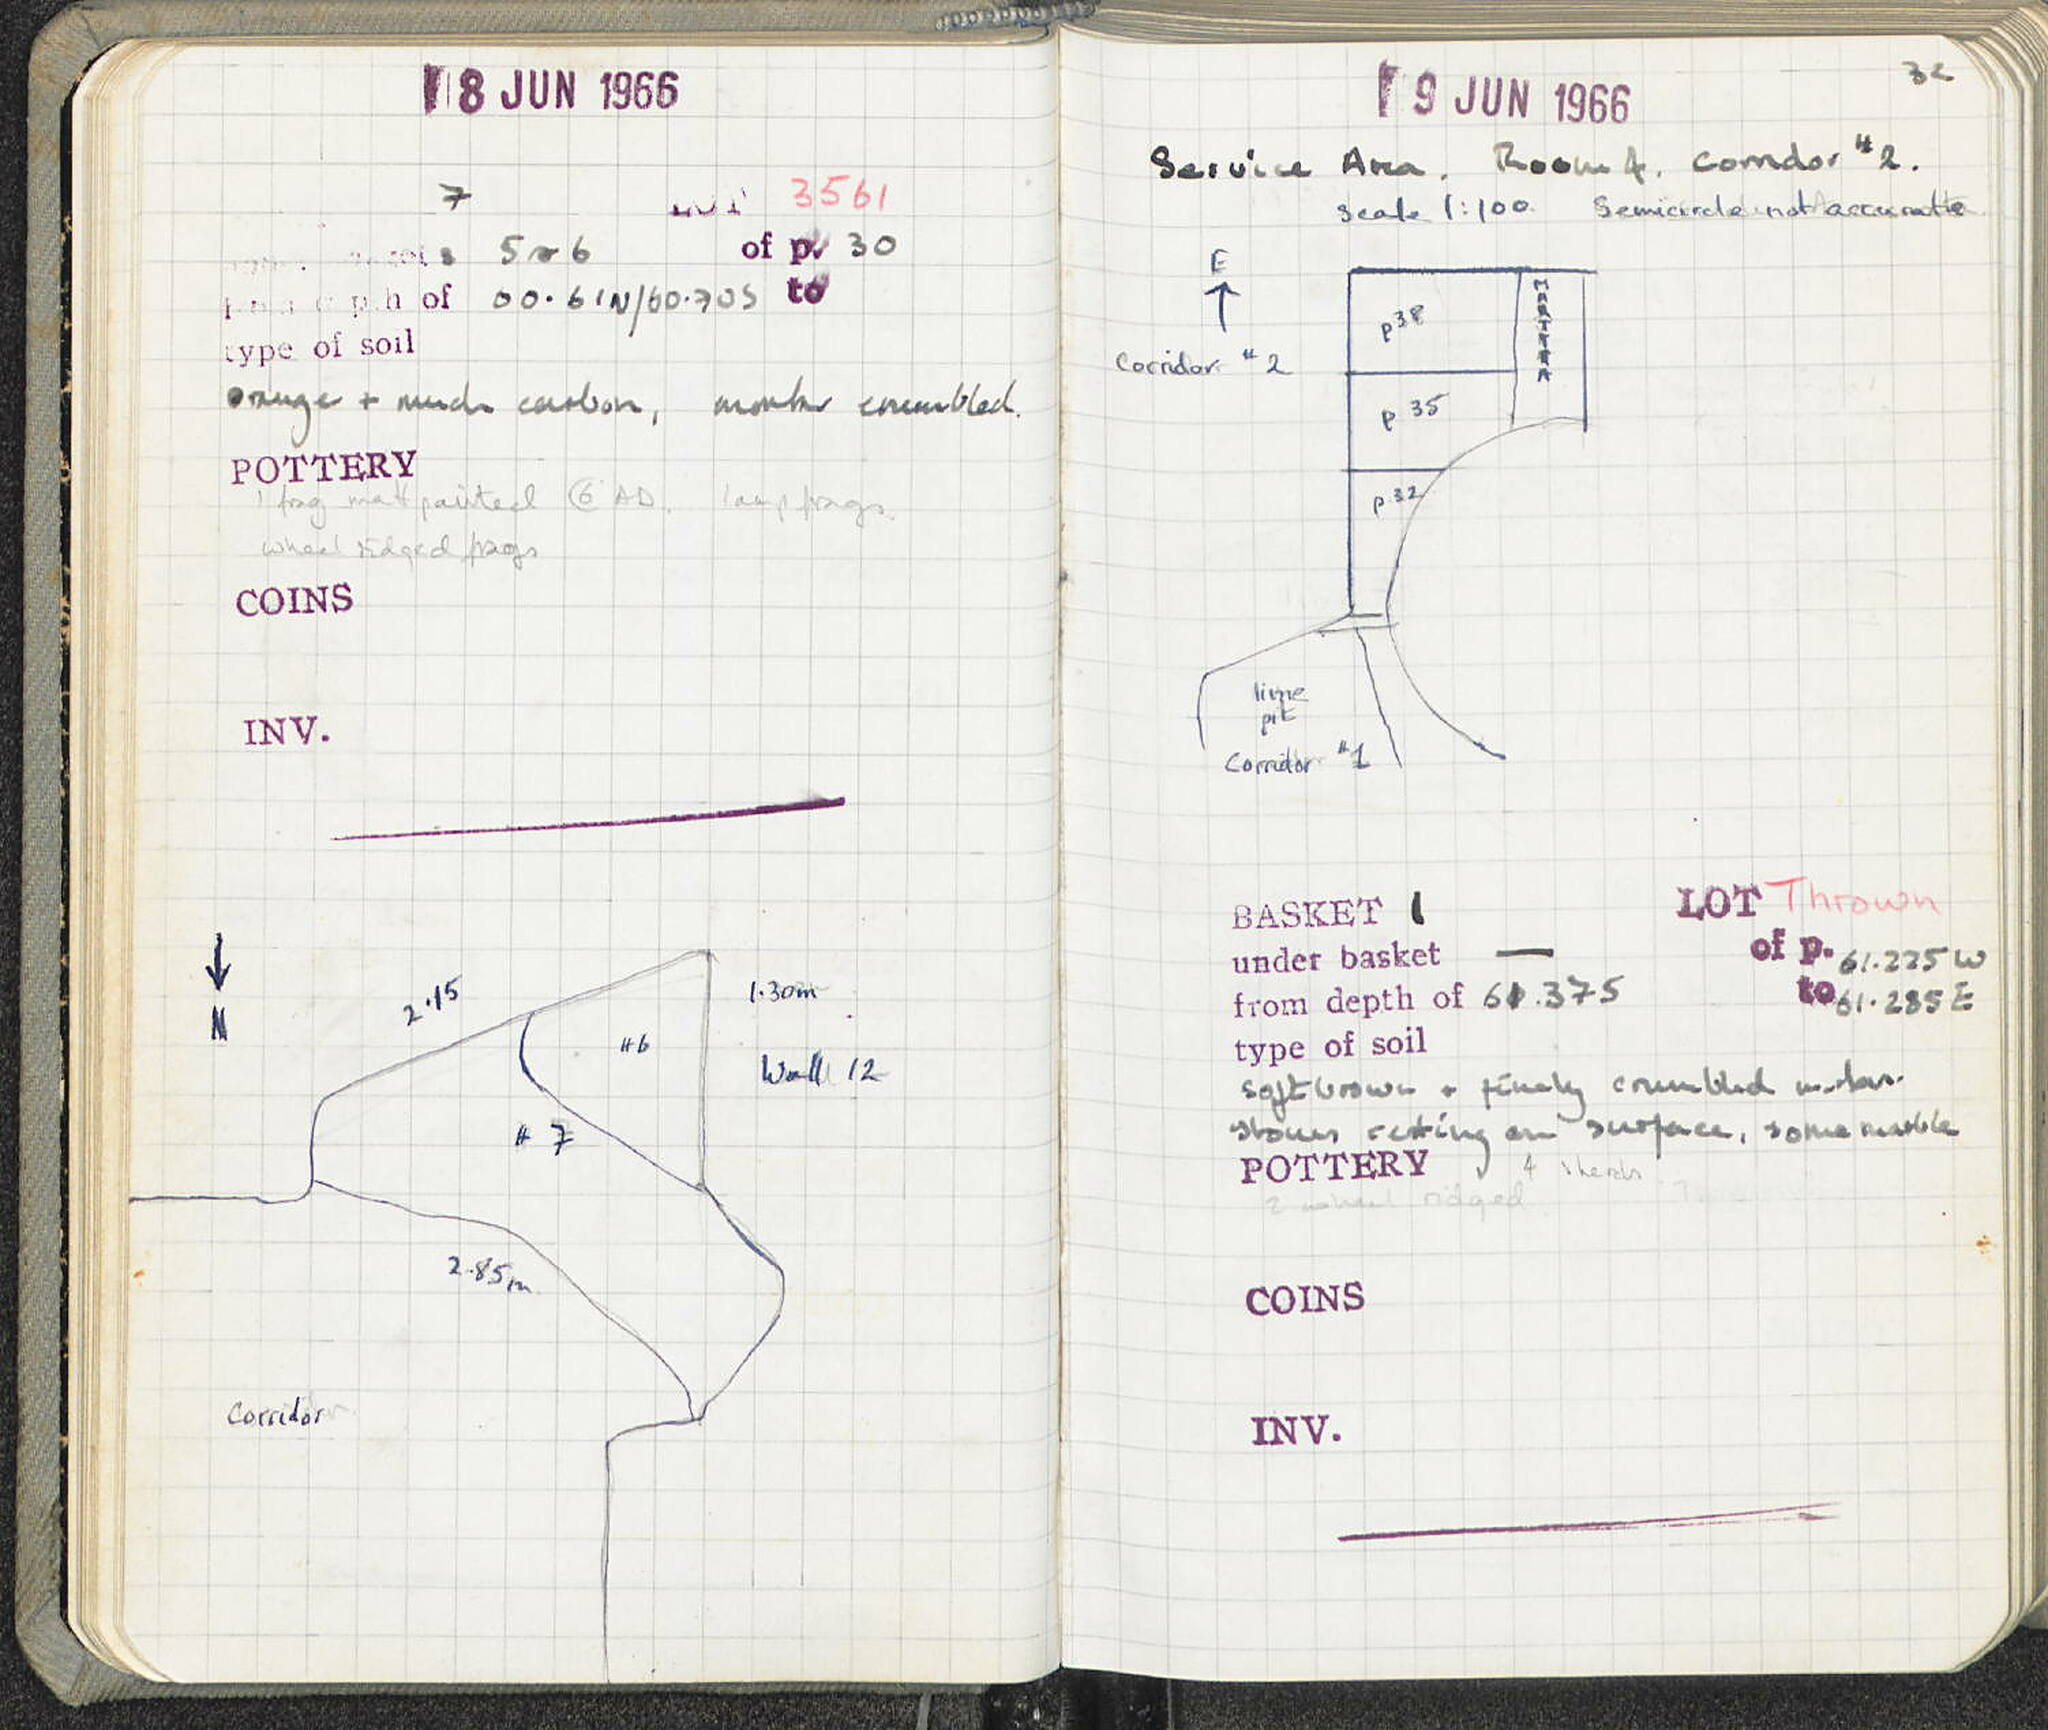 18 JUN 1966
7 LOT 3561
5 & 6 of p. 30
depth of 60.61N/60.70S to
type of soil
orange + much carbon, mortar crumbled.
POTTERY
1 frag matt painted C6 AD. lamp frags.
wheel ridged frags
COINS
INV.
N
2.15
1.30m
#6
Wall 12
# 7
2.85m
Corridor
19 JUN 1966
32
Service Area. Room 4. Corridor #2.
Scale 1:100. Semicircle not accurate
E
Corridor #2
p 38
p 35
p 32
lime
pit
Corridor #1
BASKET 1 LOT Thrown
under basket — of p. 61.225 W
from depth of 61.375 to 61.285 E
type of soil
soft brown + finely crumbled mortar.
stones resting on surface, some marble
POTTERY 4 sherds
2 wheel ridged
COINS
INV.